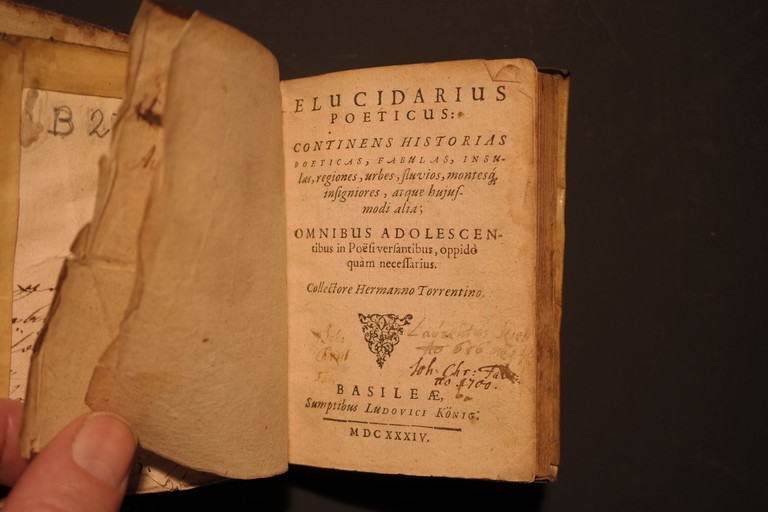 B 2
ELUCIDARIUS
POETICUS:
CONTINENS HISTORIAS
POETICAS, FABULAS, INSU-
las, regiones, urbes, fluvios, montesq́,
insigniores, atque hujus-
modi alia;
OMNIBUS ADOLESCEN-
tibus in Poësi versantibus, oppidò
quàm necessarius.
Collectore Hermanno Torrentino.
Joh. Chr:
ao 1700.
BASILEÆ,
Sumptibus LUDOVICI KÖNIG.
MDCXXXIV.